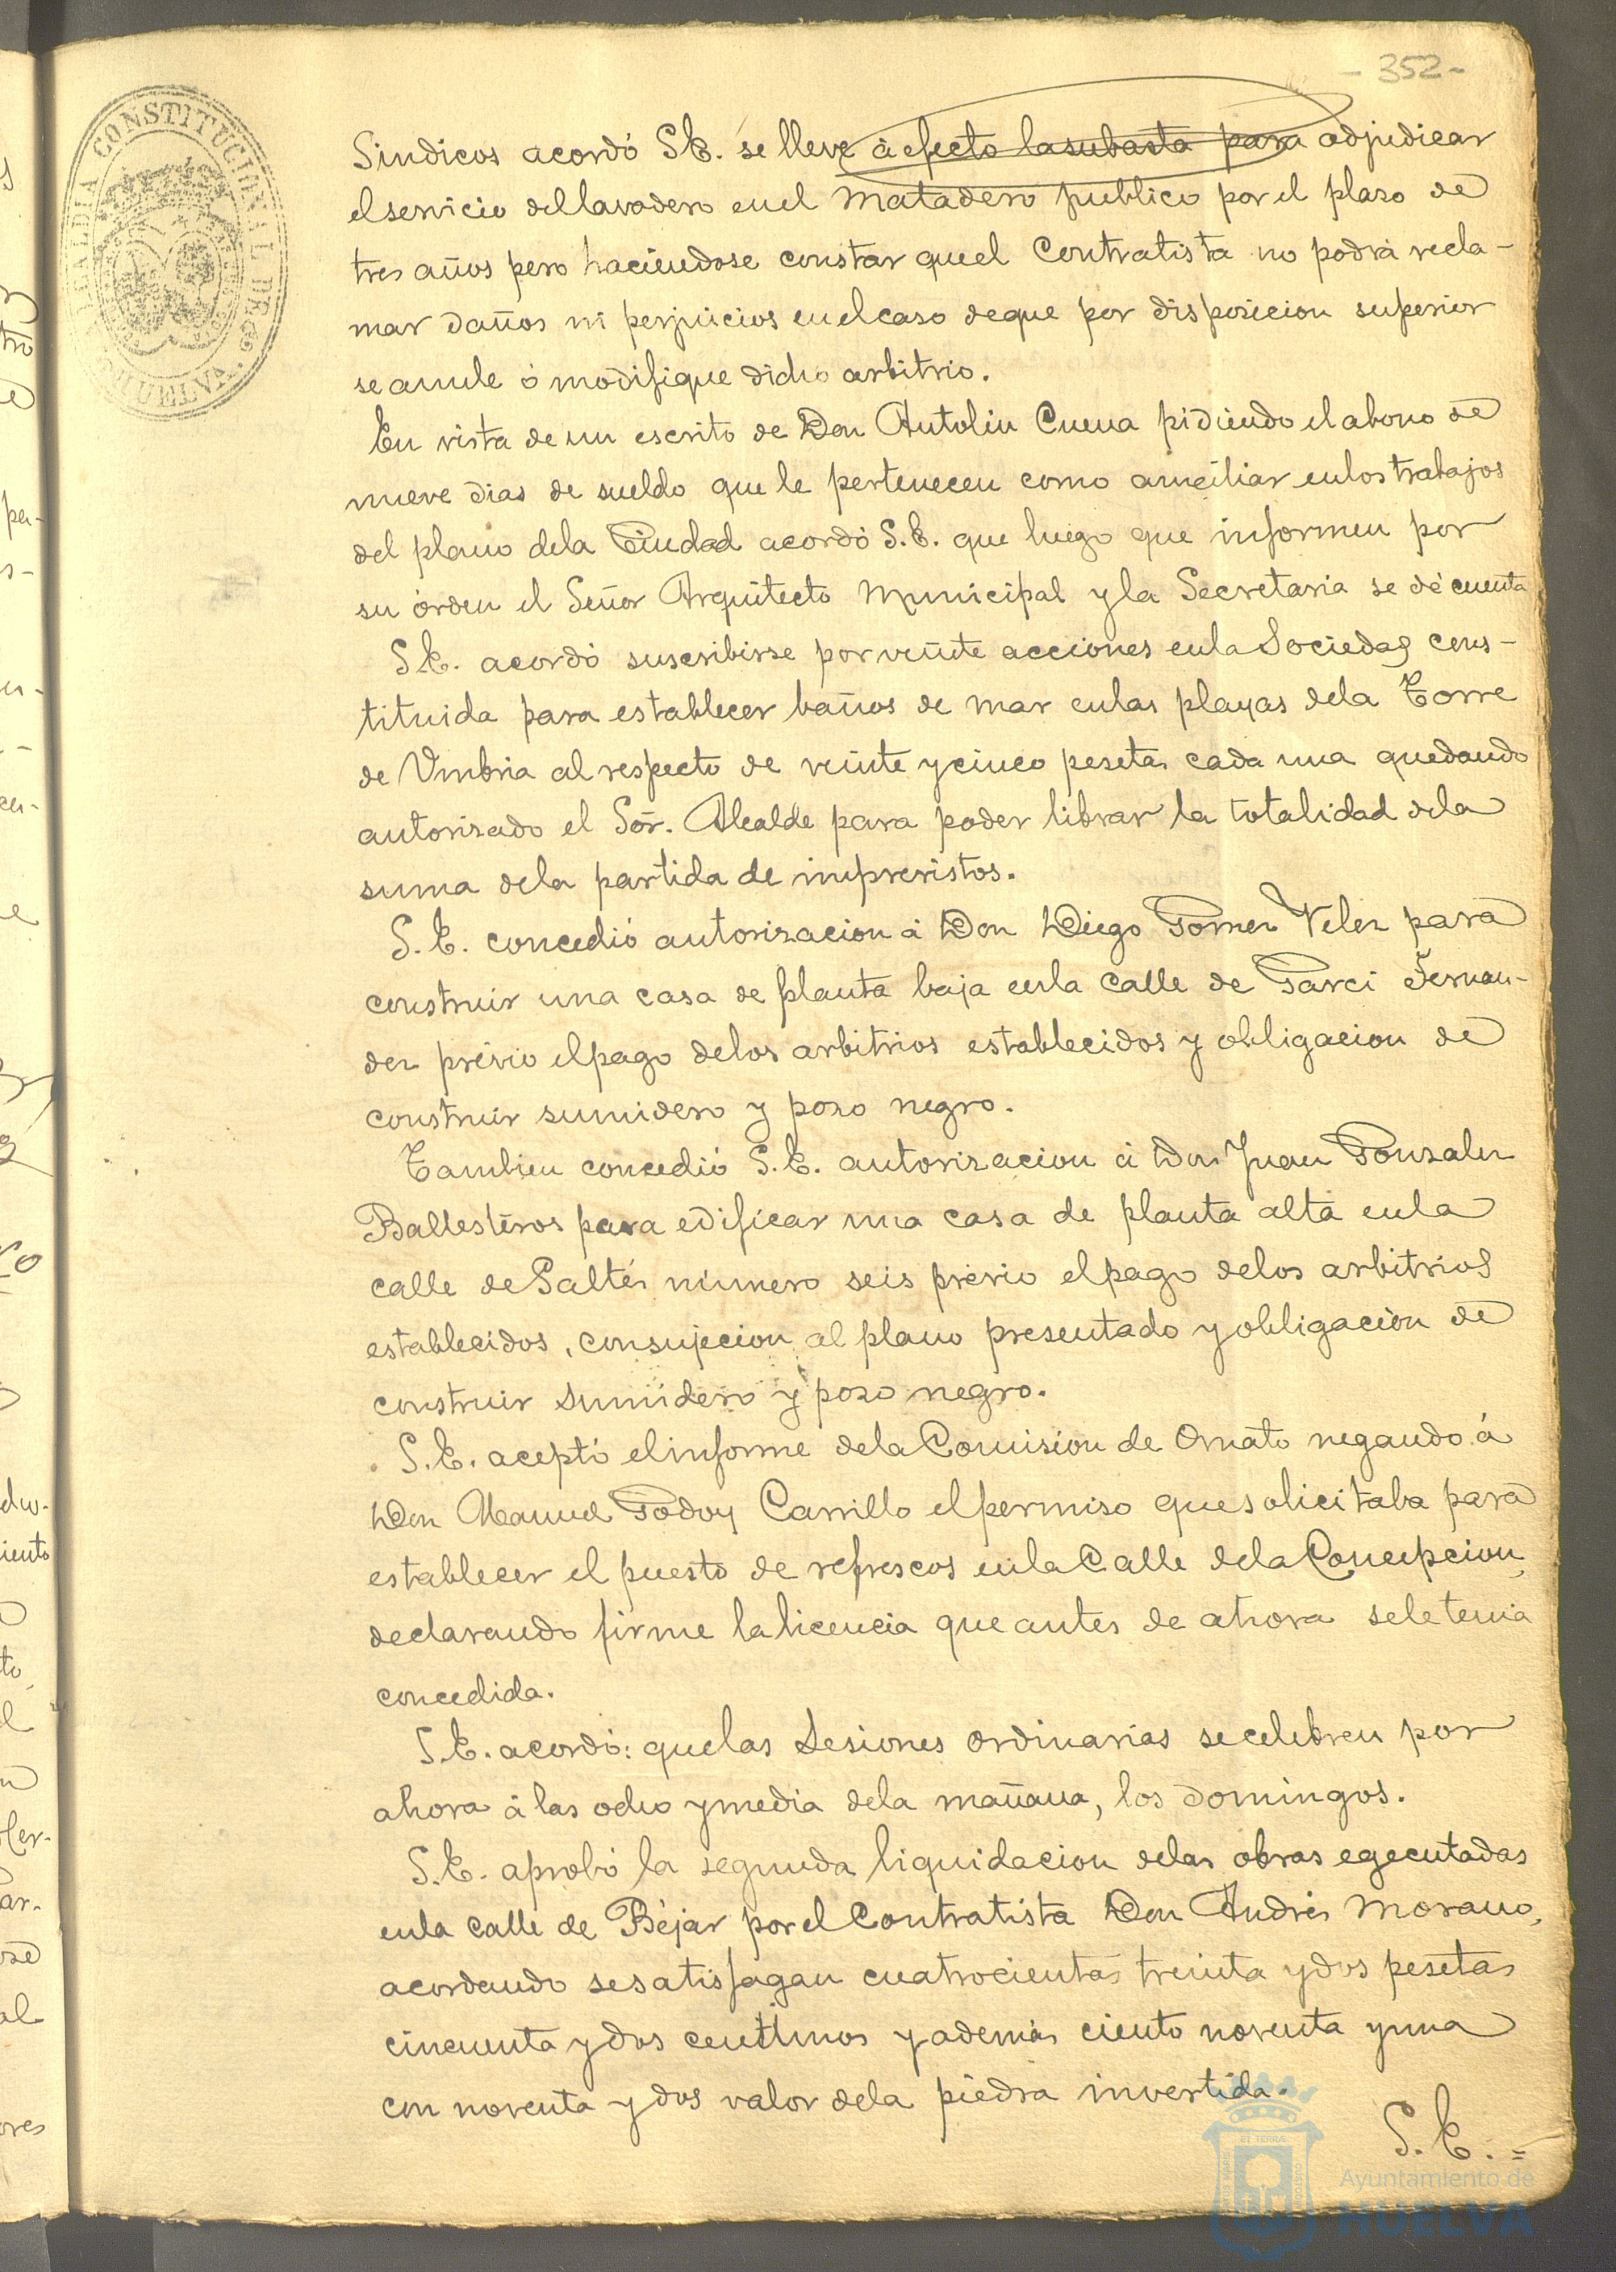 - 352 -
ALCALDIA CONSTITUCIONAL DE HUELVA.
Sindicos acordó S.E. se lleve á efecto la subasta para adjudicar
el servicio del lavadero en el Matadero publico por el plazo de
tres años pero haciéndose constar que el Contratista no podrá recla-
mar daños ni perjuicios en el caso de que por disposicion superior
se anule ó modifique dicho arbitrio.
En vista de un escrito de Don Antolin Cuena pidiendo el abono de
nueve dias de sueldo que le pertenecen como auxiliar en los trabajos
del plano de la Ciudad acordó S.E. que luego que informen por
su órden el Señor Arquitecto Municipal y la Secretaria se dé cuenta
S.E. acordó suscribirse por veinte acciones en la Sociedad cons-
tituida para establecer baños de mar en las playas de la Torre
de Umbria al respecto de veinte y cinco pesetas cada una quedando
autorizado el Sór. Alcalde para poder librar la totalidad de la
suma de la partida de imprevistos.
S.E. concedió autorizacion á Don Diego Gomez Velez para
construir una casa de planta baja en la calle de Garci Fernan-
dez prévio el pago de los arbitrios establecidos y obligacion de
construir sumidero y pozo negro.
Tambien concedió S.E. autorizacion á Don Juan Gonzalez
Ballesteros para edificar una casa de planta alta en la
calle de Saltés número seis prévio el pago de los arbitrios
establecidos, con sujecion al plano presentado y obligación de
construir sumidero y pozo negro.
S.E. aceptó el informe de la Comision de Ornato negando á
Don Manuel Godoy Carrillo el permiso que solicitaba para
establecer el puesto de refrescos en la Calle de la Concepcion,
declarando firme la licencia que antes de ahora se le tenia
concedida.
S.E. acordó: que las Sesiones ordinarias se celebren por
ahora á las ocho y media de la mañana, los Domingos.
S.E. aprobó la segunda liquidacion de las obras egecutadas
en la calle de Béjar por el Contratista Don Andrés Morano,
acordando se satisfagan cuatrocientas treinta y dos pesetas
cincuenta y dos centimos y además ciento noventa y una
con noventa y dos valor de la piedra invertida.
S.E. =
Ayuntamiento de
HUELVA